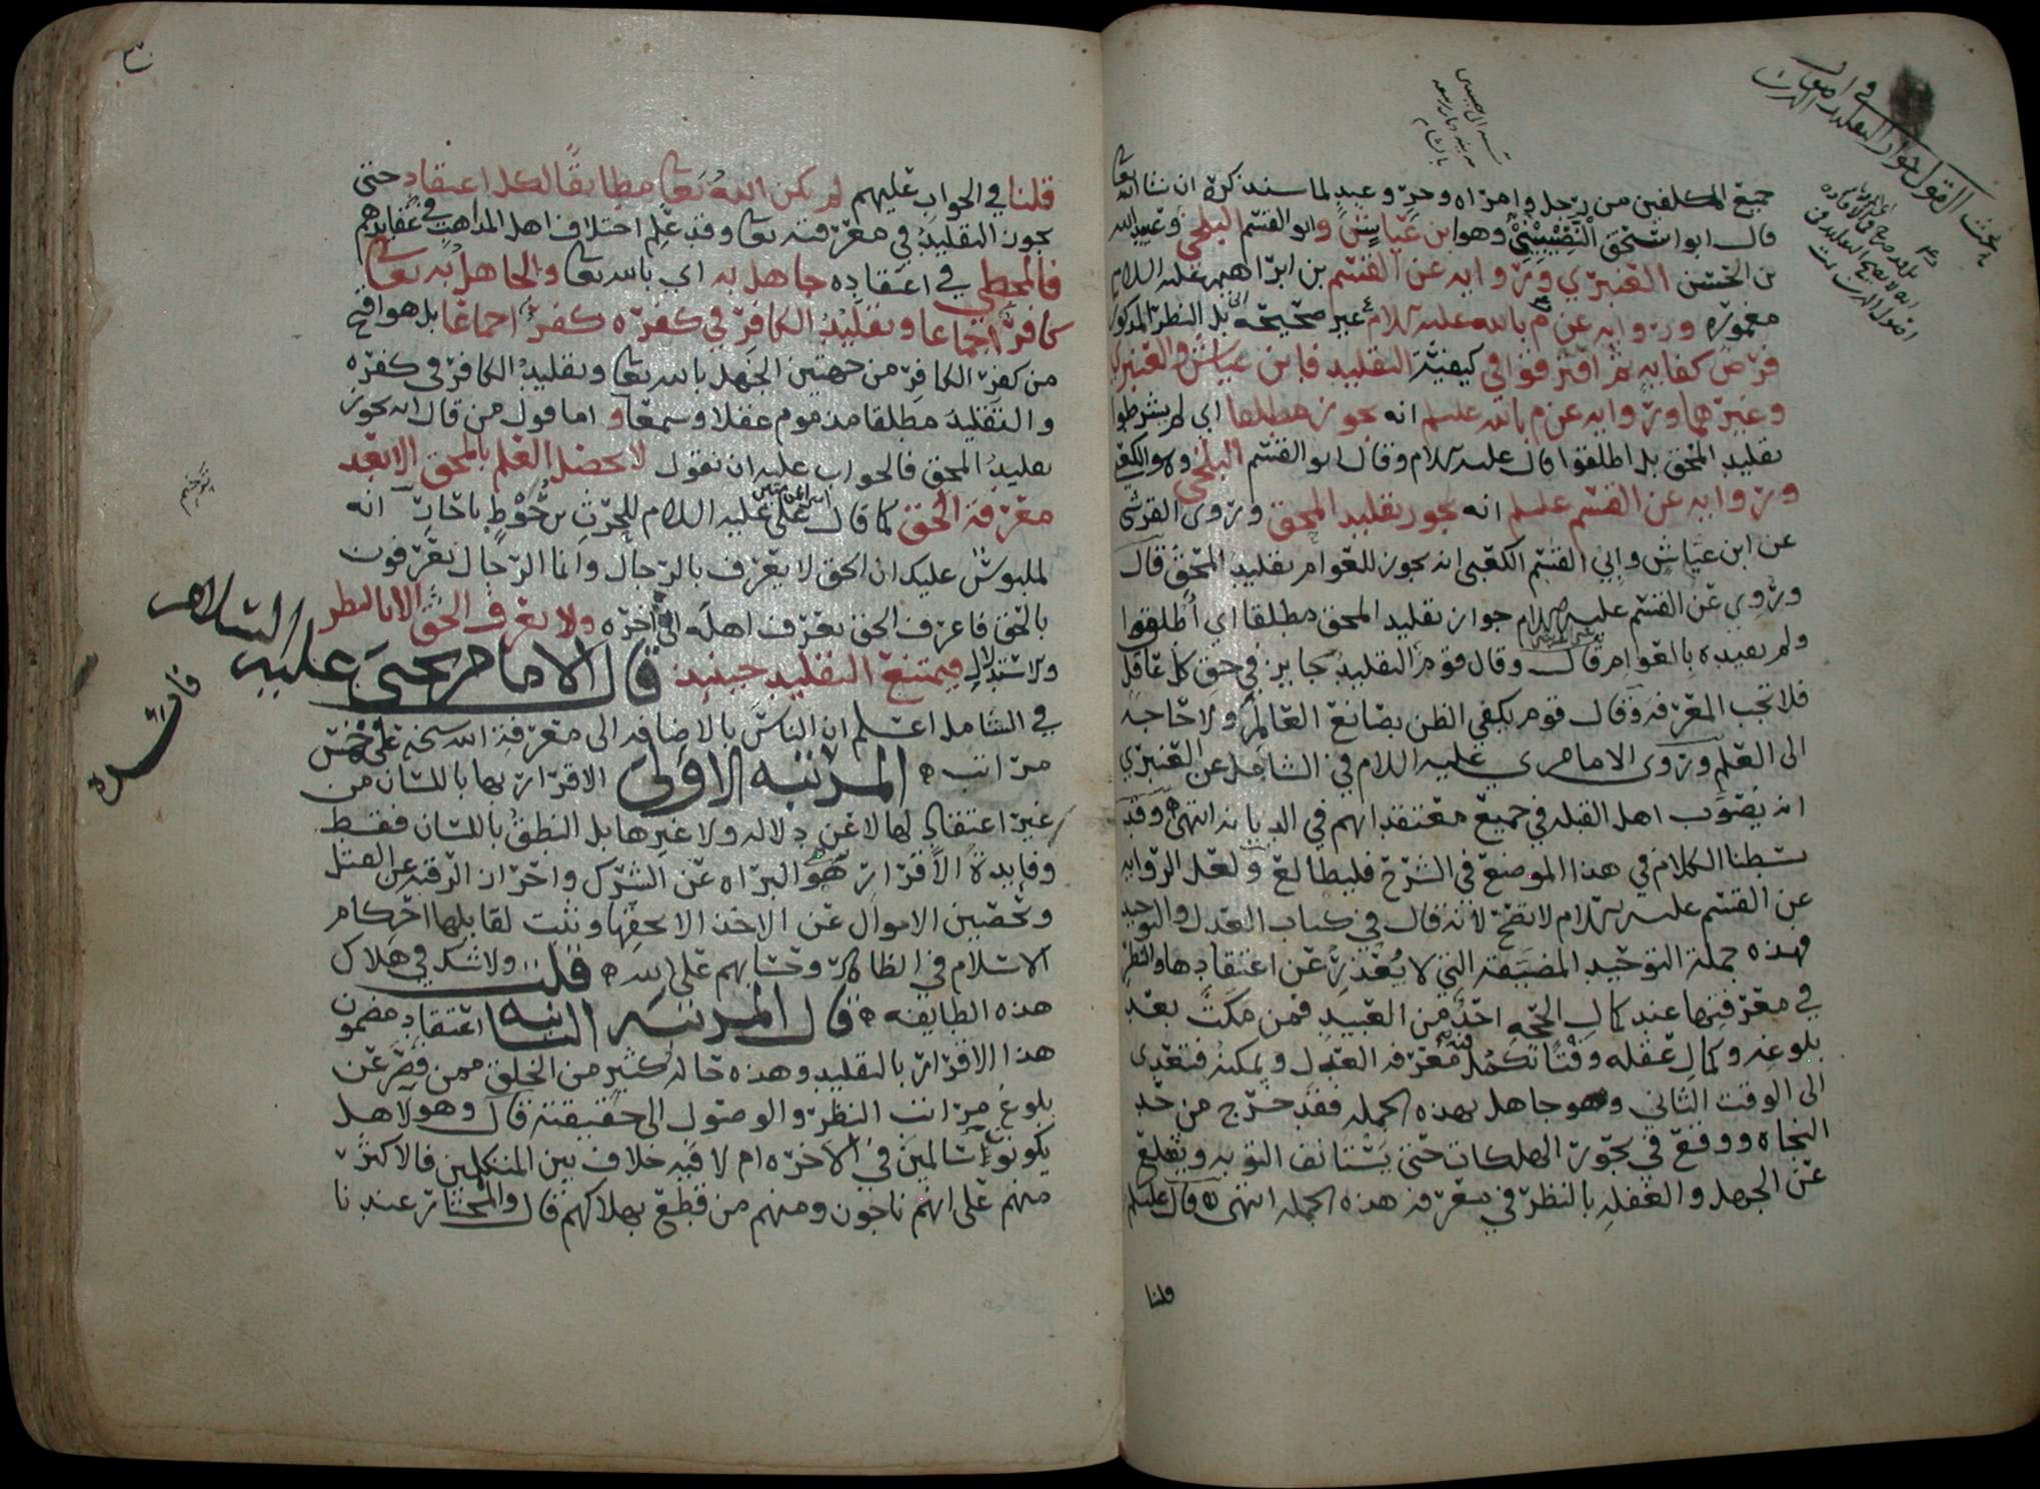 جميع المكلفين من رجل وامراه وحر وعبد لما سنذكره ان شا الله تعا
قال ابو اسحق النصيبيني وهو ابن عياش وابو القسم البلخي وعبيد الله
بن الحسن العنبري ورواية عن القسم بن ابراهيم عليه السلام
مغموره ورواية عن م بالله عليه السلام غير صحيحه بل النظر المذكور
فرض كفايه ثم افترقوا في كيفية التقليد فابن عياش والعنبري
وغيرهما ورواية عن م بالله عليلم انه يجوز مطلقا اي لم يشرطوا
تقليد المحق بل اطلقوا قال عليه السلام وقال ابو القسم البلخي وهو الكعبي
ورواية عن القسم عليلم انه يجوز تقليد المحق وروى القرشي
عن ابن عياش وابي القسم الكعبي انه يجوز للعوام تقليد المحق قال
وروي عن القسم عليه السلام جواز تقليد المحق مطلقا اي اطلقوا
ولم يقيده بالعوام قال وقال قوم التقليد جايز في حق كل عاقل
فلا تجب المعرفة وقال قوم يكفي الظن بصانع العالم ولا حاجة
الى العلم وروى الامام ي عليه السلام في الشامل عن العنبري
انه يصوب اهل القبله في جميع معتقداتهم في الديانه انتهى وقد
بسطنا الكلام في هذا الموضع في الشرح فليطالع ولعل الرواية
عن القسم عليه السلام لا تصح لانه قال في كتاب العدل والتوحيد
فهذه جملة التوحيد المضيقة التي لا يعذر عن اعتقادها والنظر
في معرفتها عند كمال الحجه احد من العبيد فمن مكث بعد
بلوغه وكمال عقله وقتا تكمل فيه معرفة العدل ويمكنه فتعدى
الى الوقت الثاني وهو جاهل بهذه الجمله فقد خرج من حد
النجاه ووقع في بحور الهلكات حتى يستانف التوبه ويقلع
عن الجهل والغفله بالنظر في معرفة هذه الجمله انتهى قال عليلم
قلنا
قلنا في الجواب عليهم لم يكن الله تعا مطابقا لكل اعتقاد حتى
يجوز التقليد في معرفته تعا وقد علم اختلاف اهل المذاهب في عقايدهم
فالمخطي في اعتقاده جاهل به اي بالله تعا والجاهل به تعا
كافر اجماعا وتقليد الكافر في كفره كفر اجماعا بل هو اقبح
من كفر الكافر من جهتين الجهل بالله تعا وتقليد الكافر في كفره
والتقليد مطلقا مذموم عقلا وسمعا واما قول من قال انه يجوز
تقليد المحق فالجواب عليه ان نقول لا يحصل العلم بالمحق الا بعد
معرفة الحق كما قال علي عليه السلام للحرث بن حوط يا حار انه
لملبوس عليك ان الحق لا يعرف بالرجال وانما الرجال تعرفون
بالحق فاعرف الحق تعرف اهله الى اخره ولا يعرف الحق الا بالنظر
والاستدلال فيمتنع التقليد حينئذ قال الامام يحيى عليه السلام
في الشامل اعلم ان الناس بالاضافه الى معرفة الله سبحنه على خمس
مراتب المرتبه الاولى الاقرار بها باللسان من
غير اعتقاد لها لا عن دلاله ولا غيرها بل النطق باللسان فقط
وفايدة الاقرار هو البراه عن الشرك واحراز الرقبه عن القتل
وتحصين الاموال عن الاخذ الا بحقها ونثبت لقايلها احكام
الاسلام في الظاهر وحسابهم على الله قلت ولا شك في هلاك
هذه الطايفه قال المرتبه الثانيه اعتقاد مضمون
هذا الاقرار بالتقليد وهذه حالة كثير من الخلق ممن قصر عن
بلوغ مراتب النظر والوصول الى حقيقته قال وهولا هل
يكونون سالمين في الاخره ام لا فيه خلاف بين المتكلمين فالاكثر
منهم على انهم ناجون ومنهم من قطع بهلاكهم قال والمختار عندنا
فائده